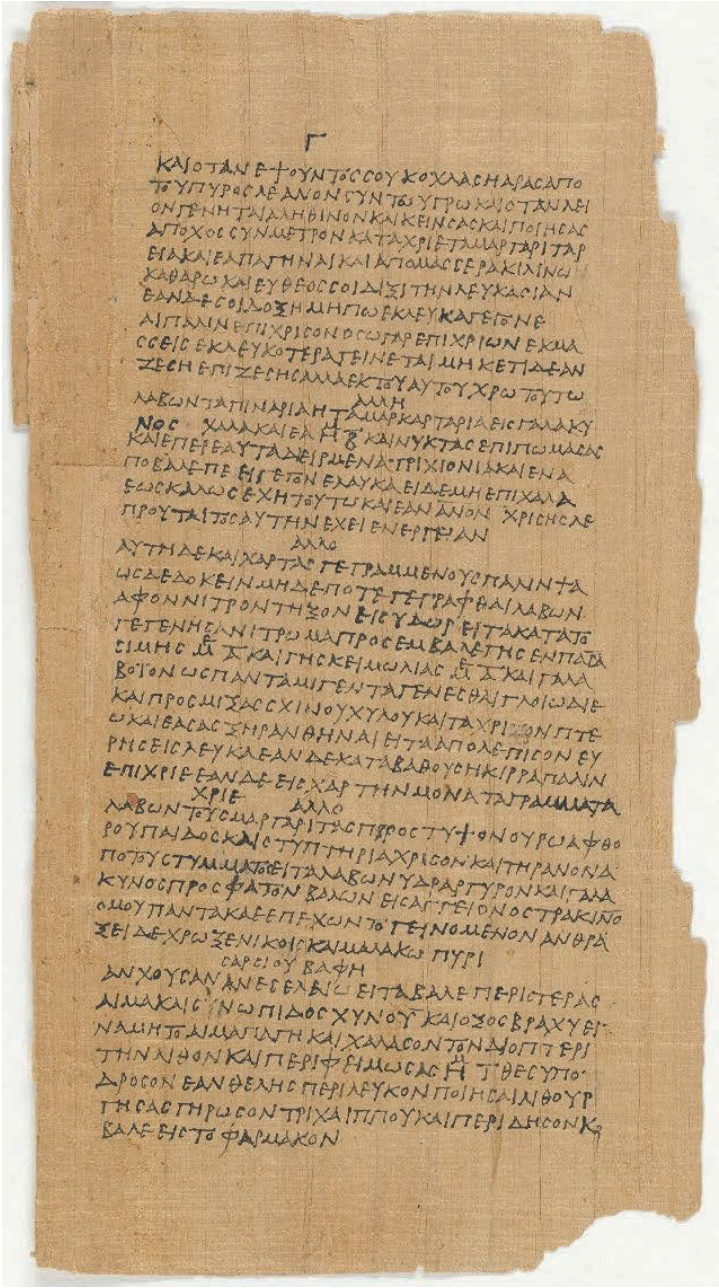 Γ
ΚΑΙ ΟΤΑΝ ΕΨΟΥΝΤΟϹ ϹΟΥ ΚΟΧΛΑϹΗ ΑΡΑϹ ΑΠΟ
ΤΟΥ ΠΥΡΟϹ ΛΕΑΝΟΝ ϹΥΝ ΤΩ ΥΓΡΩ ΚΑΙ ΟΤΑΝ ΛΕΙ
ΟΝ ΓΕΝΗΤΑΙ ΑΛΗΘΙΝΟΝ ΚΑΙ ΚΕΙΝϹΑϹ ΚΑΙ ΠΟΙΗϹΑϹ
ΑΠΟΧΟϹ ϹΥΝΜΕΤΡΟΝ ΚΑΤΑΧΡΙΕ ΤΑ ΜΑΡΓΑΡΙΤΑΡ
ΕΙΑ ΚΑΙ ΕΑ ΠΑΓΗΝΑΙ ΚΑΙ ΑΠΟΜΑϹϹΕ ΡΑΚΙ ΛΙΝΩ
ΚΑΘΑΡΩ ΚΑΙ ΕΥΘΕΟϹ ϹΟΙ ΔΙΞΙ ΤΗΝ ΛΕΥΚΑϹΙΑΝ
ΕΑΝ ΔΕ ϹΟΙ ΔΟΞΗ ΜΗΠΩ ΕΚΛΕΥΚΑ ΓΕΓΟΝΕ
ΑΙ ΠΑΛΙΝ ΕΠΙΧΡΙϹΟΝ ΟϹΩ ΓΑΡ ΕΠΙΧΡΙΩΝ ΕΚΜΑ
ϹϹΕΙϹ ΕΚΛΕΥΚΟΤΕΡΑ ΓΕΙΝΕΤΑΙ ΜΗΚΕΤΙ ΔΕ ΑΝ
ΖΕϹΗ ΕΠΙΖΕϹΗϹ ΑΛΛΑ ΕΚ ΤΟΥ ΑΥΤΟΥ ΧΡΩ ΤΟΥΤΩ
ΑΛΛΗ
ΛΑΒΩΝ ΤΑ ΠΙΝΑΡΙΑ Η ΤΑ ΜΑΡΚΑΡΤΑΡΙΑ ΕΙϹ ΓΑΛΑ ΚΥ
ΝΟϹ ΧΑΛΑ ΚΑΙ ΕΑ Η Β ΚΑΙ ΝΥΚΤΑϹ ΕΠΙΠΩΜΑϹΑϹ
ΚΑΙ ΕΠΕΡΕ ΑΥΤΑ ΔΕΙΡΜΕΝΑ ΤΡΙΧΙΟΝΙΑ ΚΑΙ ΕΝΑ
ΠΟΒΑΛΕ ΠΕ ΕΙ ΓΕΓΟΝΕ ΛΑΥΚΑ ΕΙ ΔΕ ΜΗ ΕΠΙΧΑΛΑ
ΕΩϹ ΚΑΛΩϹ ΕΧΗ ΤΟΥΤΩ ΚΑΙ ΕΑΝ ΑΝΟΝ ΧΡΙϹΗϹ ΛΕ
ΠΡΟΥΤΑΙ ΤΟϹΑΥΤΗΝ ΕΧΕΙ ΕΝΕΡΓΕΙΑΝ
ΑΛΛΟ
ΑΥΤΗ ΔΕ ΚΑΙ ΧΑΡΤΑϹ ΓΕΓΡΑΜΜΕΝΟΥϹ ΠΑΛΙΝ ΨΑ
ΩϹ ΔΕΔΟΚΕΙΝ ΜΗΔΕΠΟΤΕ ΓΕΓΡΑΦΘΑΙ ΛΑΒΩΝ
ΑΦΟΝΝΙΤΡΟΝ ΤΗΞΟΝ ΕΙϹ ΥΔΩΡ ΕΙΤΑ ΚΑΤΑ ΤΟ
ΓΕΓΕΝΗϹ ΑΝΙΤΡΩΜΑ ΠΡΟϹΕΜΒΑΛΕ ΓΗϹ ΕΝ ΠΑΤΑ
ϹΙΜΗϹ Μ Α ΚΑΙ ΓΗϹ ΚΕΙΜΩΛΙΑϹ Μ Α ΚΑΙ ΓΑΛΑ
ΒΟΙΟΝ ΩϹ ΠΑΝΤΑ ΜΙΓΕΝΤΑ ΓΕΝΕϹΘΑΙ ΓΛΟΙΩΔΙΕ
ΚΑΙ ΠΡΟϹΜΙΞΑϹ ϹΧΙΝΟΥ ΧΥΛΟΥ ΚΑΙ ΤΑ ΧΡΙϹΟΝ ΠΤΕ
Ω ΚΑΙ ΕΑϹΑϹ ΞΗΡΑΝΘΗΝΑΙ ΕΙΤΑ ΑΠΟΛΕΠΙϹΟΝ ΕΥ
ΡΗϹΕΙϹ ΛΕΥΚΛ ΕΑΝ ΔΕ ΚΑΤΑΒΑΘΟΥϹ Η ΚΙΡΡΑ ΠΑΛΙΝ
ΕΠΙΧΡΙΕ ΕΑΝ ΔΕ ΕΙϹ ΧΑΡΤΗΝ ΜΟΝΑ ΤΑ ΓΡΑΜΜΑΤΑ
ΧΡΙΕ ΑΛΛΟ
ΛΑΒΩΝ ΤΟΥϹ ΜΑΡΓΑΡΙΤΑϹ ΠΡΟϹΤΥΨΟΝ ΟΥΡΩ ΑΦΘΟ
ΡΟΥ ΠΑΙΔΟϹ ΚΑΙ ϹΤΥΠΤΗΡΙΑ ΧΡΙϹΟΝ ΚΑΙ ΤΗΡΑΝΟΝ Α
ΠΟ ΤΟΥ ϹΤΥΜΜΑΤΟϹ ΕΙΤΑ ΛΑΒΩΝ ΥΔΡΑΡΓΥΡΟΝ ΚΑΙ ΓΑΛΑ
ΚΥΝΟϹ ΠΡΟϹΦΑΤΟΝ ΒΑΛΩΝ ΕΙϹ ΑΓΓΕΙΟΝ ΟϹΤΡΑΚΙΝΟ
ΟΜΟΥ ΠΑΝΤΑ ΚΑΕ ΕΠΕΧΩΝ ΤΟ ΓΕΙΝΟΜΕΝΟΝ ΑΝΘΡΑ
ΞΕΙ ΔΕ ΧΡΩ ΞΕΝΙΚΟΙϹ ΚΑΙ ΜΑΛΑΚΩ ΠΥΡΙ
ϹΑΡϹΙΟΥ ΒΑΦΗ
ΑΝΧΟΥϹΑΝ ΑΝΕϹ ΕΛΕΙΩ ΕΙΤΑ ΒΑΛΕ ΠΕΡΙϹΤΕΡΑϹ
ΑΙΜΑ ΚΑΙ ϹΙΝΩΠΙΔΟϹ ΧΥΝΟΥ ΚΑΙ ΟΞΟϹ ΒΡΑΧΥ ΕΙ
ΝΑ ΜΗ ΤΟ ΑΙΜΑ ΠΑΓΗ ΚΑΙ ΧΑΛΑϹΟΝ ΤΟΝ ΔΙΟΠΤΕΡΙ
ΤΗΝ ΛΙΘΟΝ ΚΑΙ ΠΕΡΙΦΕΙΜΩϹΑϹ Η Τ ΘΕϹ ΥΠΟ
ΔΡΟϹΟΝ ΕΑΝ ΘΕΛΗϹ ΠΕΡΙΛΕΥΚΟΝ ΠΟΙΗϹΑΙ ΛΙΘΟΥΡ
ΓΗϹΑϹ ΠΗΡΩϹΟΝ ΤΡΙΧΑ ΙΠΠΟΥ ΚΑΙ ΠΕΡΙΔΗϹΟΝ Κ
ΒΑΛΕ ΕΙϹ ΤΟ ΦΑΡΜΑΚΟΝ